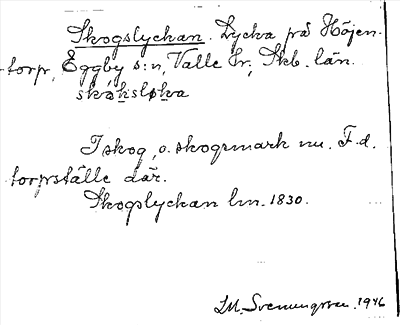 Skogslyckan. Lycka på Höjen-
torp, Eggby s:n, Valle hr, Skb. län.
skoksloka
I skog, o. skogsmark nu. F.d.
torpställe där.
Skogslyckan hm. 1830.
1946